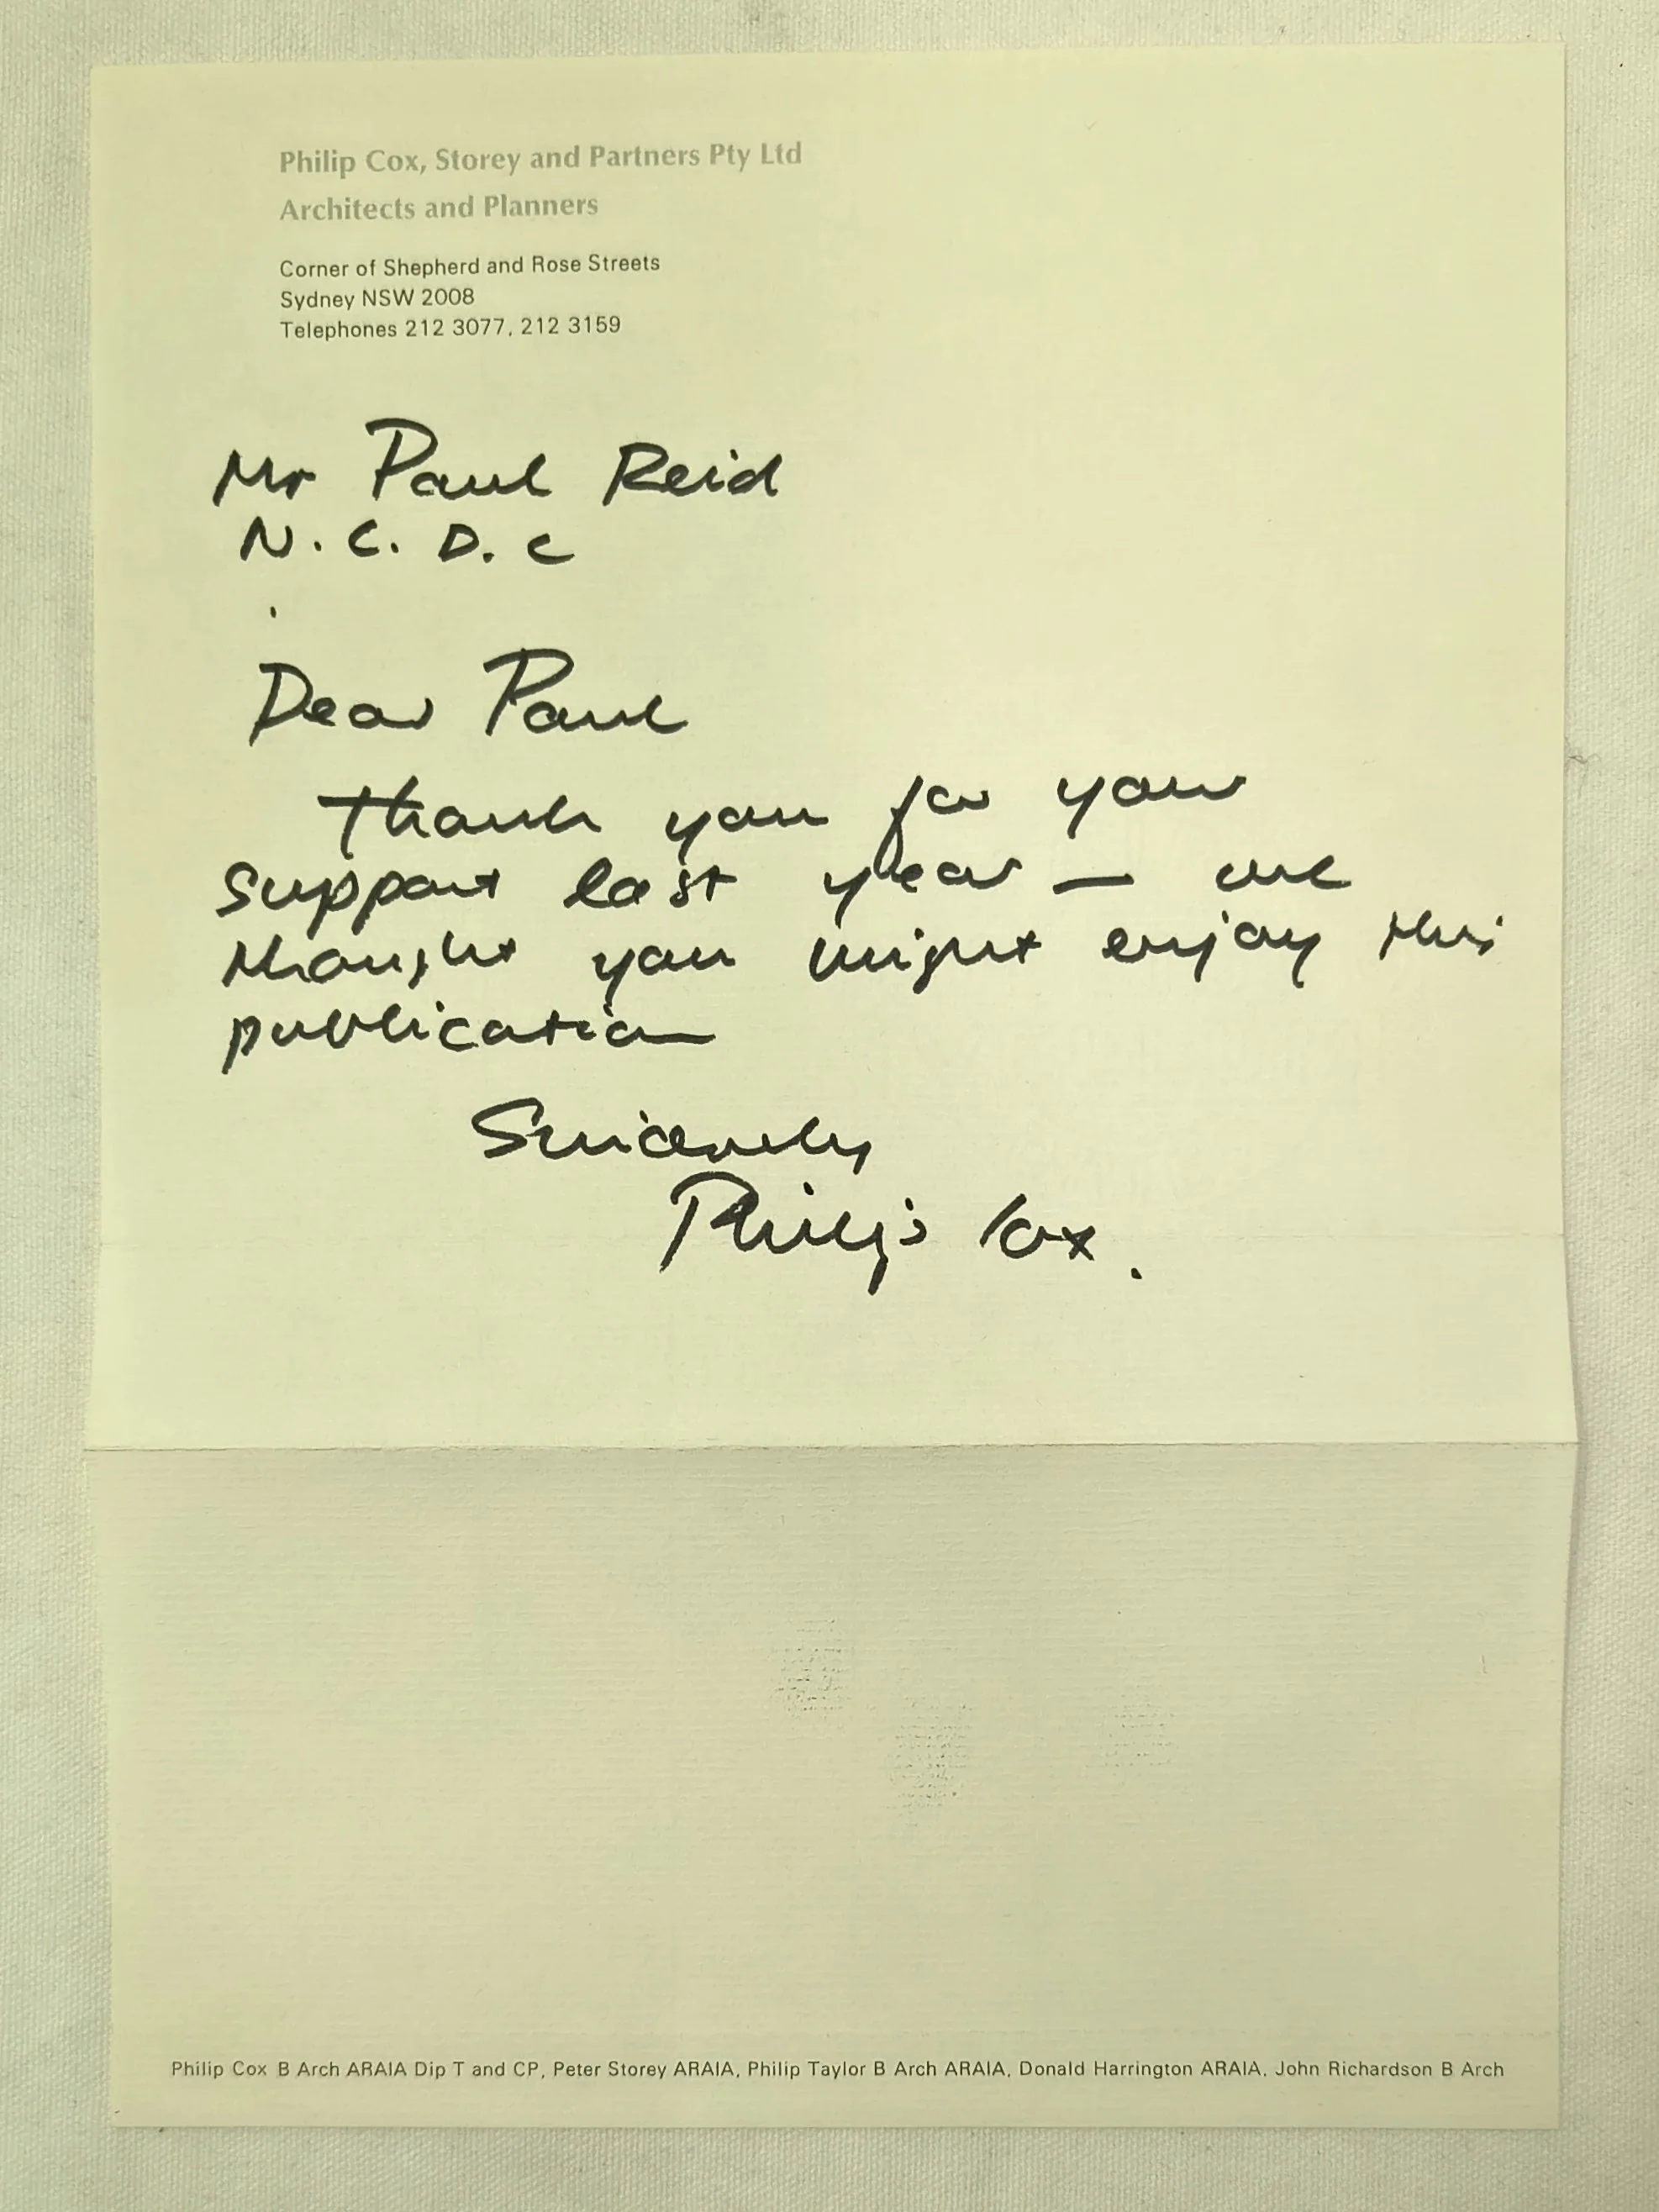 Philip Cox, Storey and Partners Pty Ltd
Architects and Planners
Corner of Shepherd and Rose Streets
Sydney NSW 2008
Telephones 212 3077, 212 3159
Mr Paul Reid
N.C.D.C
Dear Paul
Thank you for your
support last year — we
thought you might enjoy this
publication
Sincerely
Philip Cox.
Philip Cox B Arch ARAIA Dip T and CP, Peter Storey ARAIA, Philip Taylor B Arch ARAIA, Donald Harrington ARAIA, John Richardson B Arch